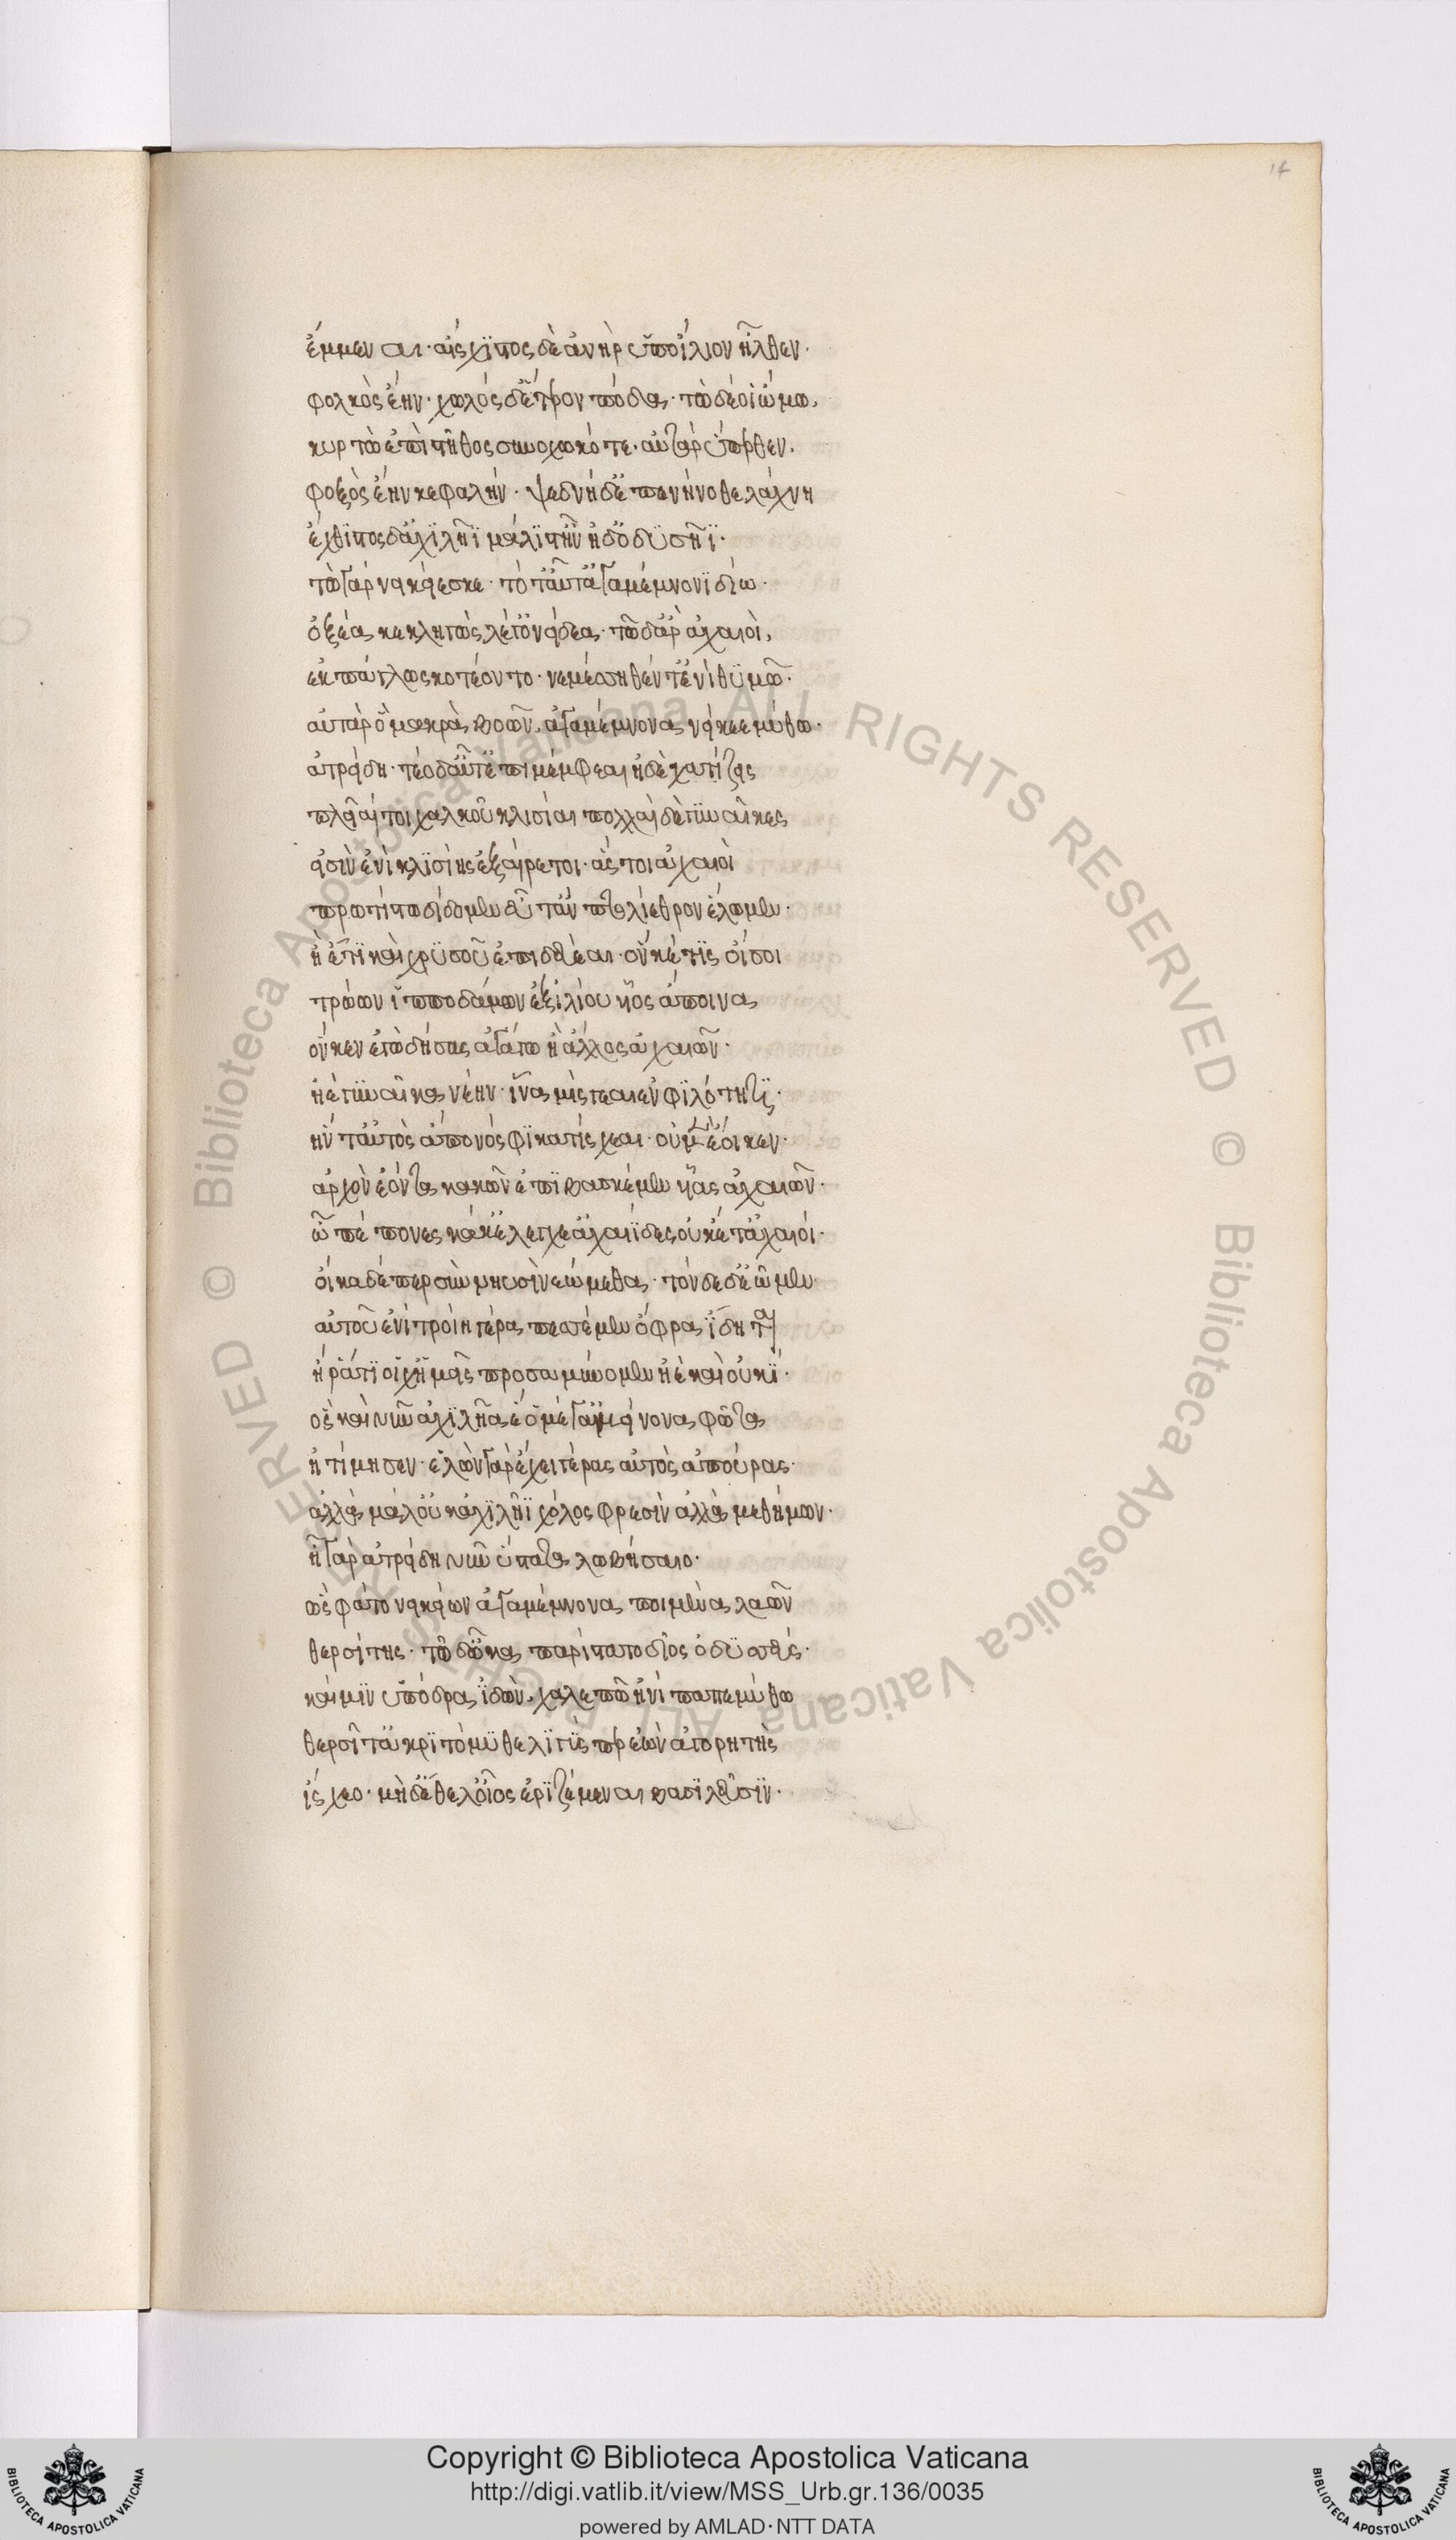 14
ἔμμεναι· αἴσχιστος δὲ ἀνὴρ ὑπὸ ἴλιον ἦλθεν·
φολκὸς ἔην· χωλός δ' ἕτερον πόδα· τὼ δέ οἱ ὤμω,
κυρτὼ ἐπὶ στῆθος συνοχωκότε· αὐτὰρ ὕπερθεν.
φοξὸς ἔην κεφαλήν· ψεδνὴ δ' ἐπενήνοθε λάχνη
ἔχθιστος δ' ἀχιλῆϊ μάλιστ' ἦν ἠδ' ὀδυσῆϊ·
τὼ γὰρ νεικείεσκε· τότ' αὖτ' ἀγαμέμνονι δίω·
ὀξέα κεκληγὼς λέγ' ὀνείδεα· τῶ δ' ἄρ' ἀχαιοὶ,
ἐκπάγλως κοτέοντο· νεμέσσηθέν τ' ἐνὶ θυμῶ·
αὐτὰρ ὃ μακρὰ βοῶν, ἀγαμέμνονα νείκεε μύθω·
ἀτρείδη· τέο δ' αὖτ' ἐπιμέμφεαι ἠδὲ χατίζεις
πλεῖαί τοι χαλκοῦ κλισίαι πολλαὶ δὲ γυναῖκες
εἰσὶν ἐνὶ κλισίης ἐξαίρετοι· ἅς τοι ἀχαιοὶ
πρωτίστω δίδομεν εὖτ' ἂν πτολίεθρον ἕλωμεν·
ἢ ἔτι καὶ χρυσοῦ ἐπιδεύεαι· ὅν κέ τις οἴσοι
τρώων ἱπποδάμων ἐξ ἰλίου υἷος ἄποινα
ὅν κεν ἐγὼ δήσας ἀγάγω ἢ ἄλλος ἀχαιῶν·
ἠὲ γυναῖκα νέην· ἵνα μίσγεαι ἐν φιλότητι·
ἥν τ' αὐτὸς ἀπονόσφι κατίσχεαι· οὐ μὲν ἔοικεν·
ἀρχὸν ἐόντα κακῶν ἐπιβασκέμεν υἷας ἀχαιῶν·
ὦ πέπονες κάκ' ἐλέγχε' ἀχαιίδες οὐκέτ' ἀχαιοί·
οἴκαδέ περ σὺν νηυσὶ νεώμεθα· τόνδε δ' ἐῶμεν
αὐτοῦ ἐνὶ τροίη γέρα πεσσέμεν ὄφρα ἴδηται
ἤ ῥά τι οἱ χ' ἡμεῖς προσαμύνομεν ἠὲ καὶ οὐκί·
ὃς καὶ νῦν ἀχιλῆα ἕο μέγ' ἀμείνονα φῶτα
ἠτίμησεν· ἑλὼν γὰρ ἔχει γέρας αὐτὸς ἀπούρας·
ἀλλὰ μάλ' οὐκ ἀχιλῆϊ χόλος φρεσὶν ἀλλὰ μεθήμων·
ἦ γὰρ ἀτρείδη νῦν ὕστατα λωβήσαιο·
ὣς φάτο νεικείων ἀγαμέμνονα ποιμένα λαῶν
θερσίτης· τῶ δ' ὦκα παρίστατο δῖος ὀδυσσεύς·
καί μιν ὑπόδρα ἰδὼν, χαλεπῶ ἠνίπαπε μύθω
θερσῖτ' ἀκριτόμυθε λιγύς περ ἐὼν ἀγορητὴς
ἴσχεο· μὴ δ' ἔθελ' οἶος ἐριζέμεναι βασιλεῦσιν·
Copyright © Biblioteca Apostolica Vaticana
http://digi.vatlib.it/view/MSS_Urb.gr.136/0035
powered by AMLAD·NTT DATA